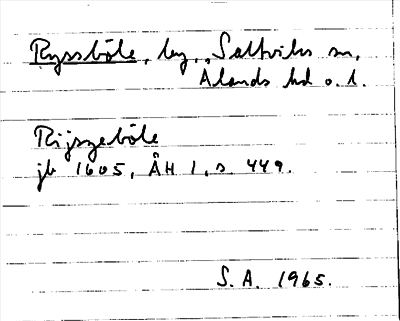 Ryssböle, by, Saltviks sn,
Ålands hd o. l.
Rijszeböle
jb 1605, ÅH 1, s. 449.
S. A. 1965.